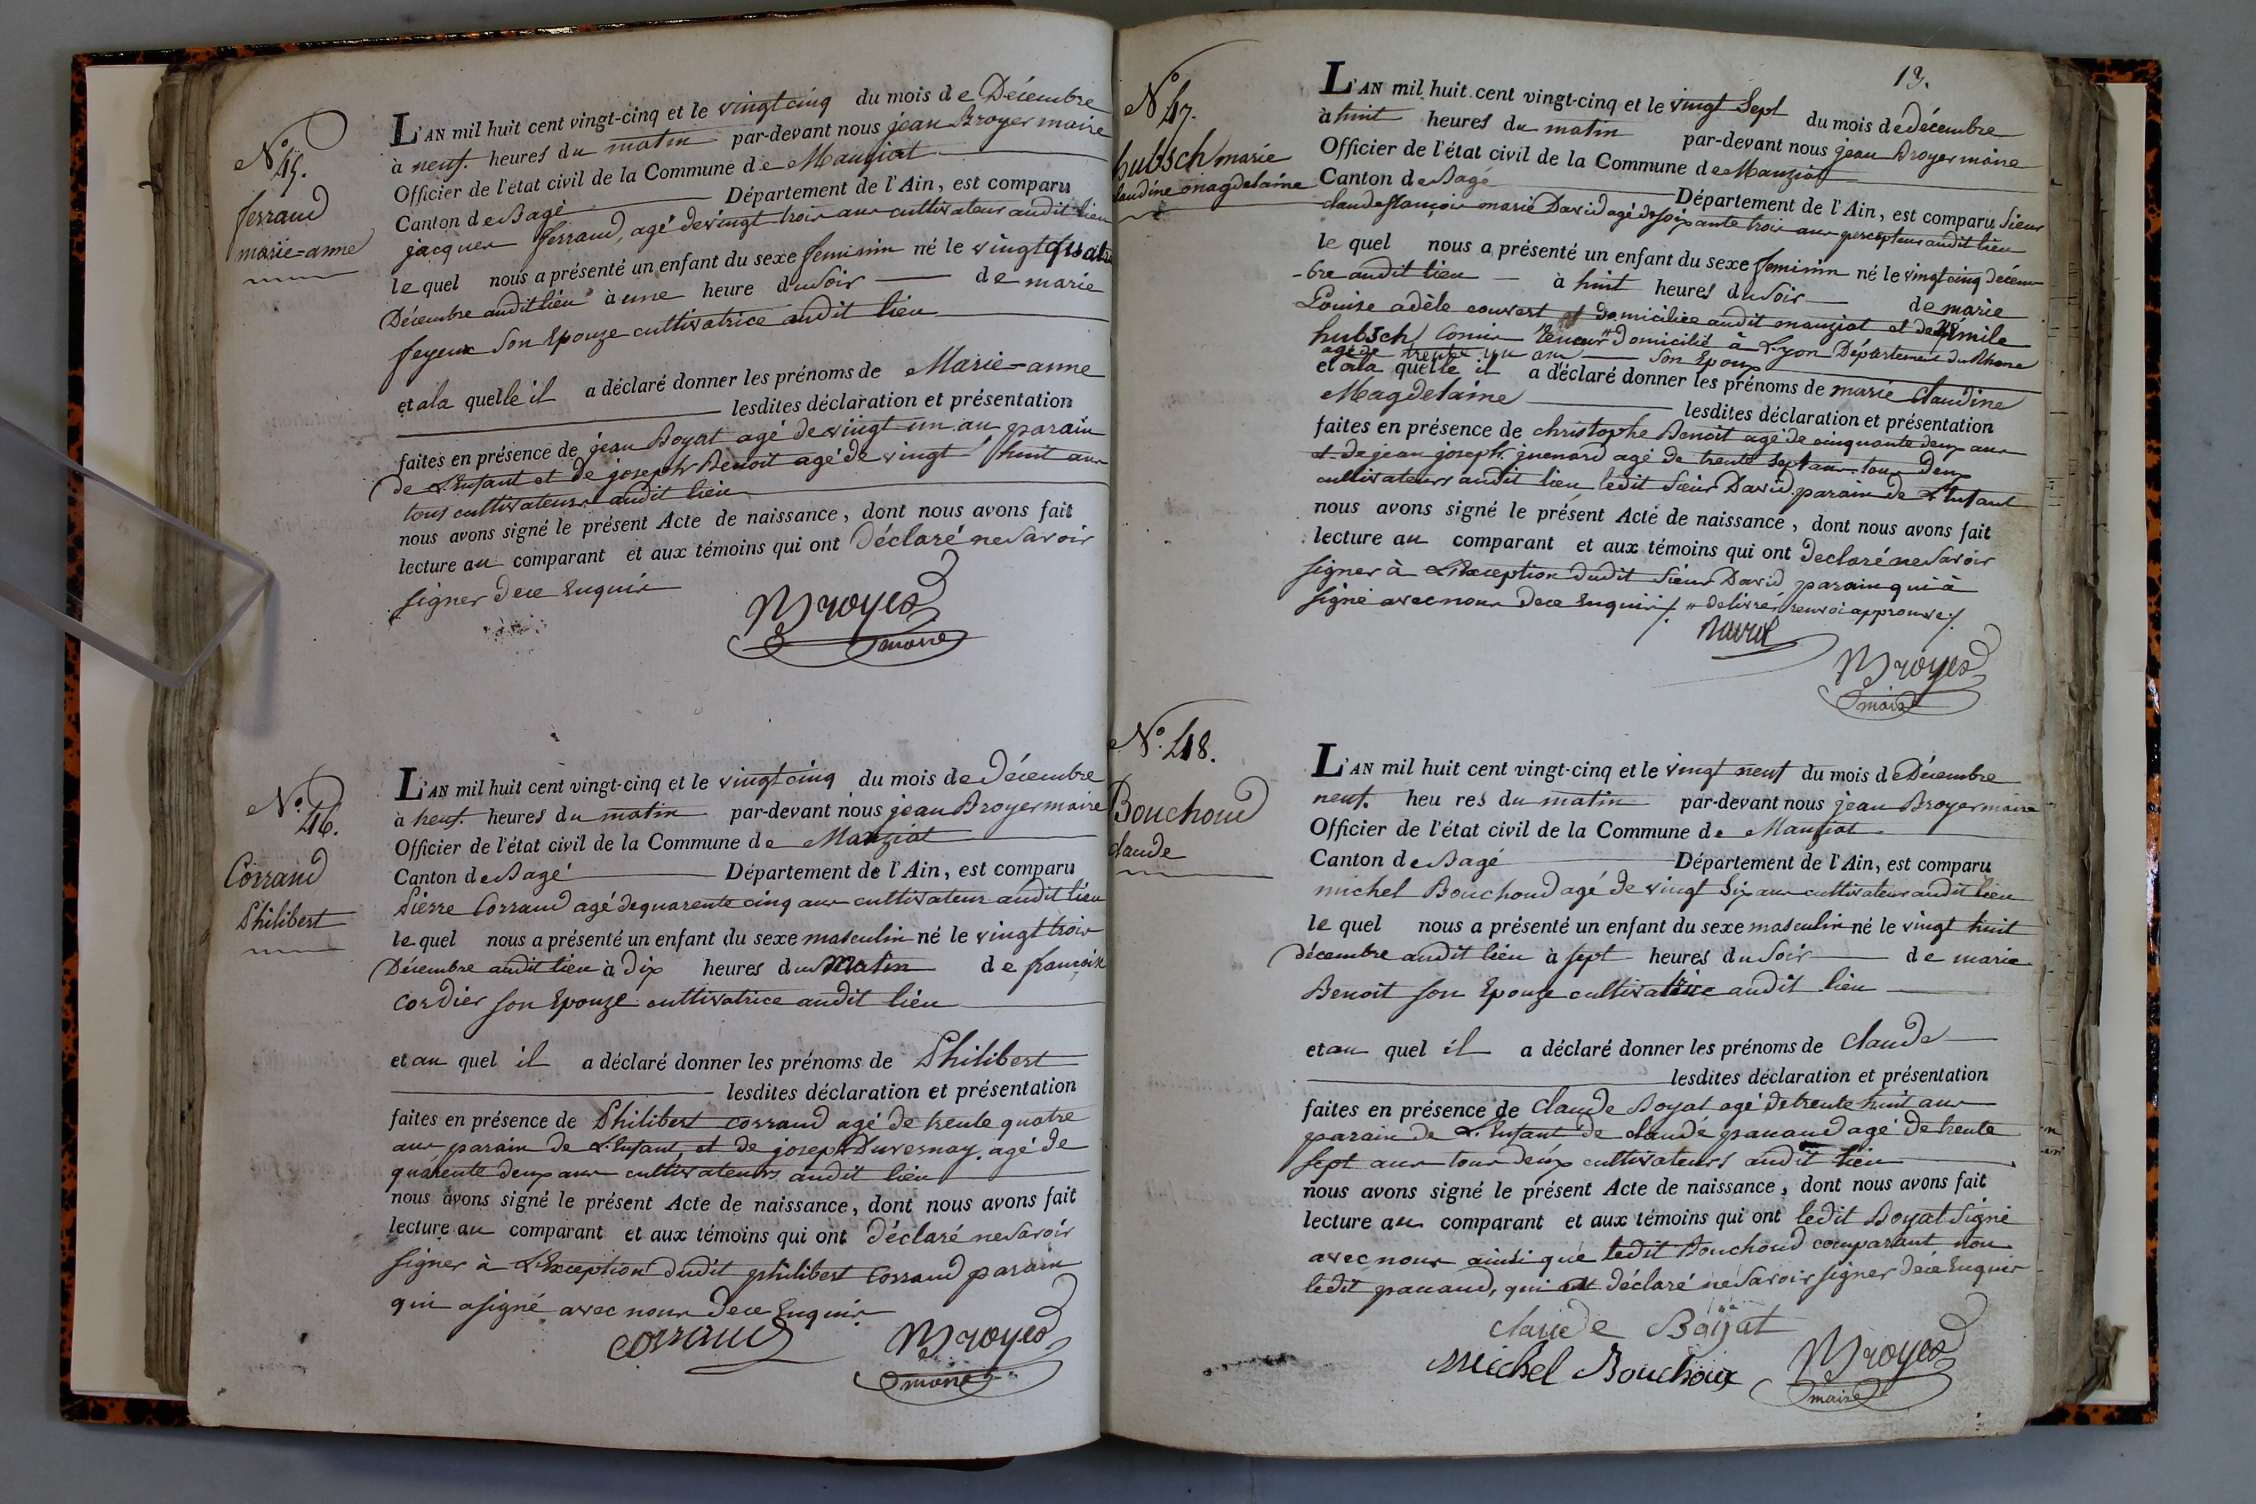 N.° 45.
ferraud
marie=anne
L'AN mil huit cent vingt-cinq et le vingt cinq du mois de Décembre
à neuf heures du matin par-devant nous jean Broyer maire
Officier de l'état civil de la Commune de Manziat
Canton de Bagé Département de l'Ain, est comparu
jacques ferraud, agé de vingt trois ans cultivateur audit lieu
lequel nous a présenté un enfant du sexe feminin né le vingt quatre
Décembre audit lieu à une heure du Soir de marie
feyeux Son Epouze cultivatrice audit lieu
et à la quelle il a déclaré donner les prénoms de Marie=anne
lesdites déclaration et présentation
faites en présence de jean Boyat agé de vingt un an parain
de L'Enfant et de joseph Benoit agé de vingt huit ans
tous cultivateurs audit lieu
nous avons signé le présent Acte de naissance, dont nous avons fait
lecture au comparant et aux témoins qui ont Déclaré ne Savoir
signer de ce Enquis
Broyer
maire
N.° 46.
Corraud
Philibert
L'AN mil huit cent vingt-cinq et le vingt cinq du mois de Décembre
à neuf heures du matin par-devant nous jean Broyer maire
Officier de l'état civil de la Commune de Manziat
Canton de Bagé Département de l'Ain, est comparu
Pierre Corraud agé de quarente cinq ans cultivateur audit lieu
lequel nous a présenté un enfant du sexe masculin né le vingt trois
Décembre audit lieu à dix heures du Matin de francoise
cordier son Epouze cultivatrice audit lieu
et au quel il a déclaré donner les prénoms de Philibert
lesdites déclaration et présentation
faites en présence de Philibert corraud agé de trente quatre
ans parain de L'Enfant, et de joseph Duvernay agé de
quarente deux ans cultivateurs audit lieu
nous avons signé le présent Acte de naissance, dont nous avons fait
lecture au comparant et aux témoins qui ont déclaré ne Savoir
signer à L'Exception dudit philibert Corraud parain
qui a signé avec nous de ce Enquis
corraud
Broyer
maire
13.
N.° 47.
hubsch marie
claudine magdelaine
L'AN mil huit cent vingt-cinq et le vingt Sept du mois de décembre
à huit heures du matin par-devant nous jean Broyer maire
Officier de l'état civil de la Commune de Manziat
Canton de Bagé Département de l'Ain, est comparu Sieur
claude françois marie David agé de soixante trois ans percepteur audit lieu
le quel nous a présenté un enfant du sexe feminin né le vingt cinq décem
-bre audit lieu à huit heures du Soir de marie
Louise adèle couvert et domiciliée audit manziat et de Emile
hubsch Domicilié à Lyon Département du Rhone
agé de trente un an son Epoux
et à la quelle il a déclaré donner les prénoms de marie claudine
Magdelaine lesdites déclaration et présentation
faites en présence de christophe Benoit agé de cinquante deux ans
et de jean joseph guenard agé de trente Sept ans tous Deux
cultivateurs audit lieu ledit Sieur David parain de L'Enfant
nous avons signé le présent Acte de naissance, dont nous avons fait
lecture au comparant et aux témoins qui ont declaré ne Savoir
signer à L'Exception dudit Sieur David parain qui à
signé avec nous de ce Enquis renvoi approuvé
David
Broyer
maire
N.° 48.
Bouchoud
claude
L'AN mil huit cent vingt-cinq et le vingt neuf du mois de Décembre
neuf heu res du matin par-devant nous jean Broyer maire
Officier de l'état civil de la Commune de Manziat
Canton de Bagé Département de l'Ain, est comparu
michel Bouchoud agé de vingt Six ans cultivateur audit lieu
le quel nous a présenté un enfant du sexe masculin né le vingt huit
décembre audit lieu à sept heures du Soir de marie
Benoit son Epouze cultivatrice audit lieu
et au quel il a déclaré donner les prénoms de claude
lesdites déclaration et présentation
faites en présence de claude Boyat agé de trente huit ans
parain de L'Enfant de claude panaud agé de trente
sept ans tous deux cultivateurs audit lieu
nous avons signé le présent Acte de naissance, dont nous avons fait
lecture au comparant et aux témoins qui ont ledit Boyat Signé
avec nous ainsi que ledit Bouchoud comparant non
ledit panaud, qui a déclaré ne Savoir signer de ce Enquis
claude Boyat
michel Bouchoux
Broyer
maire